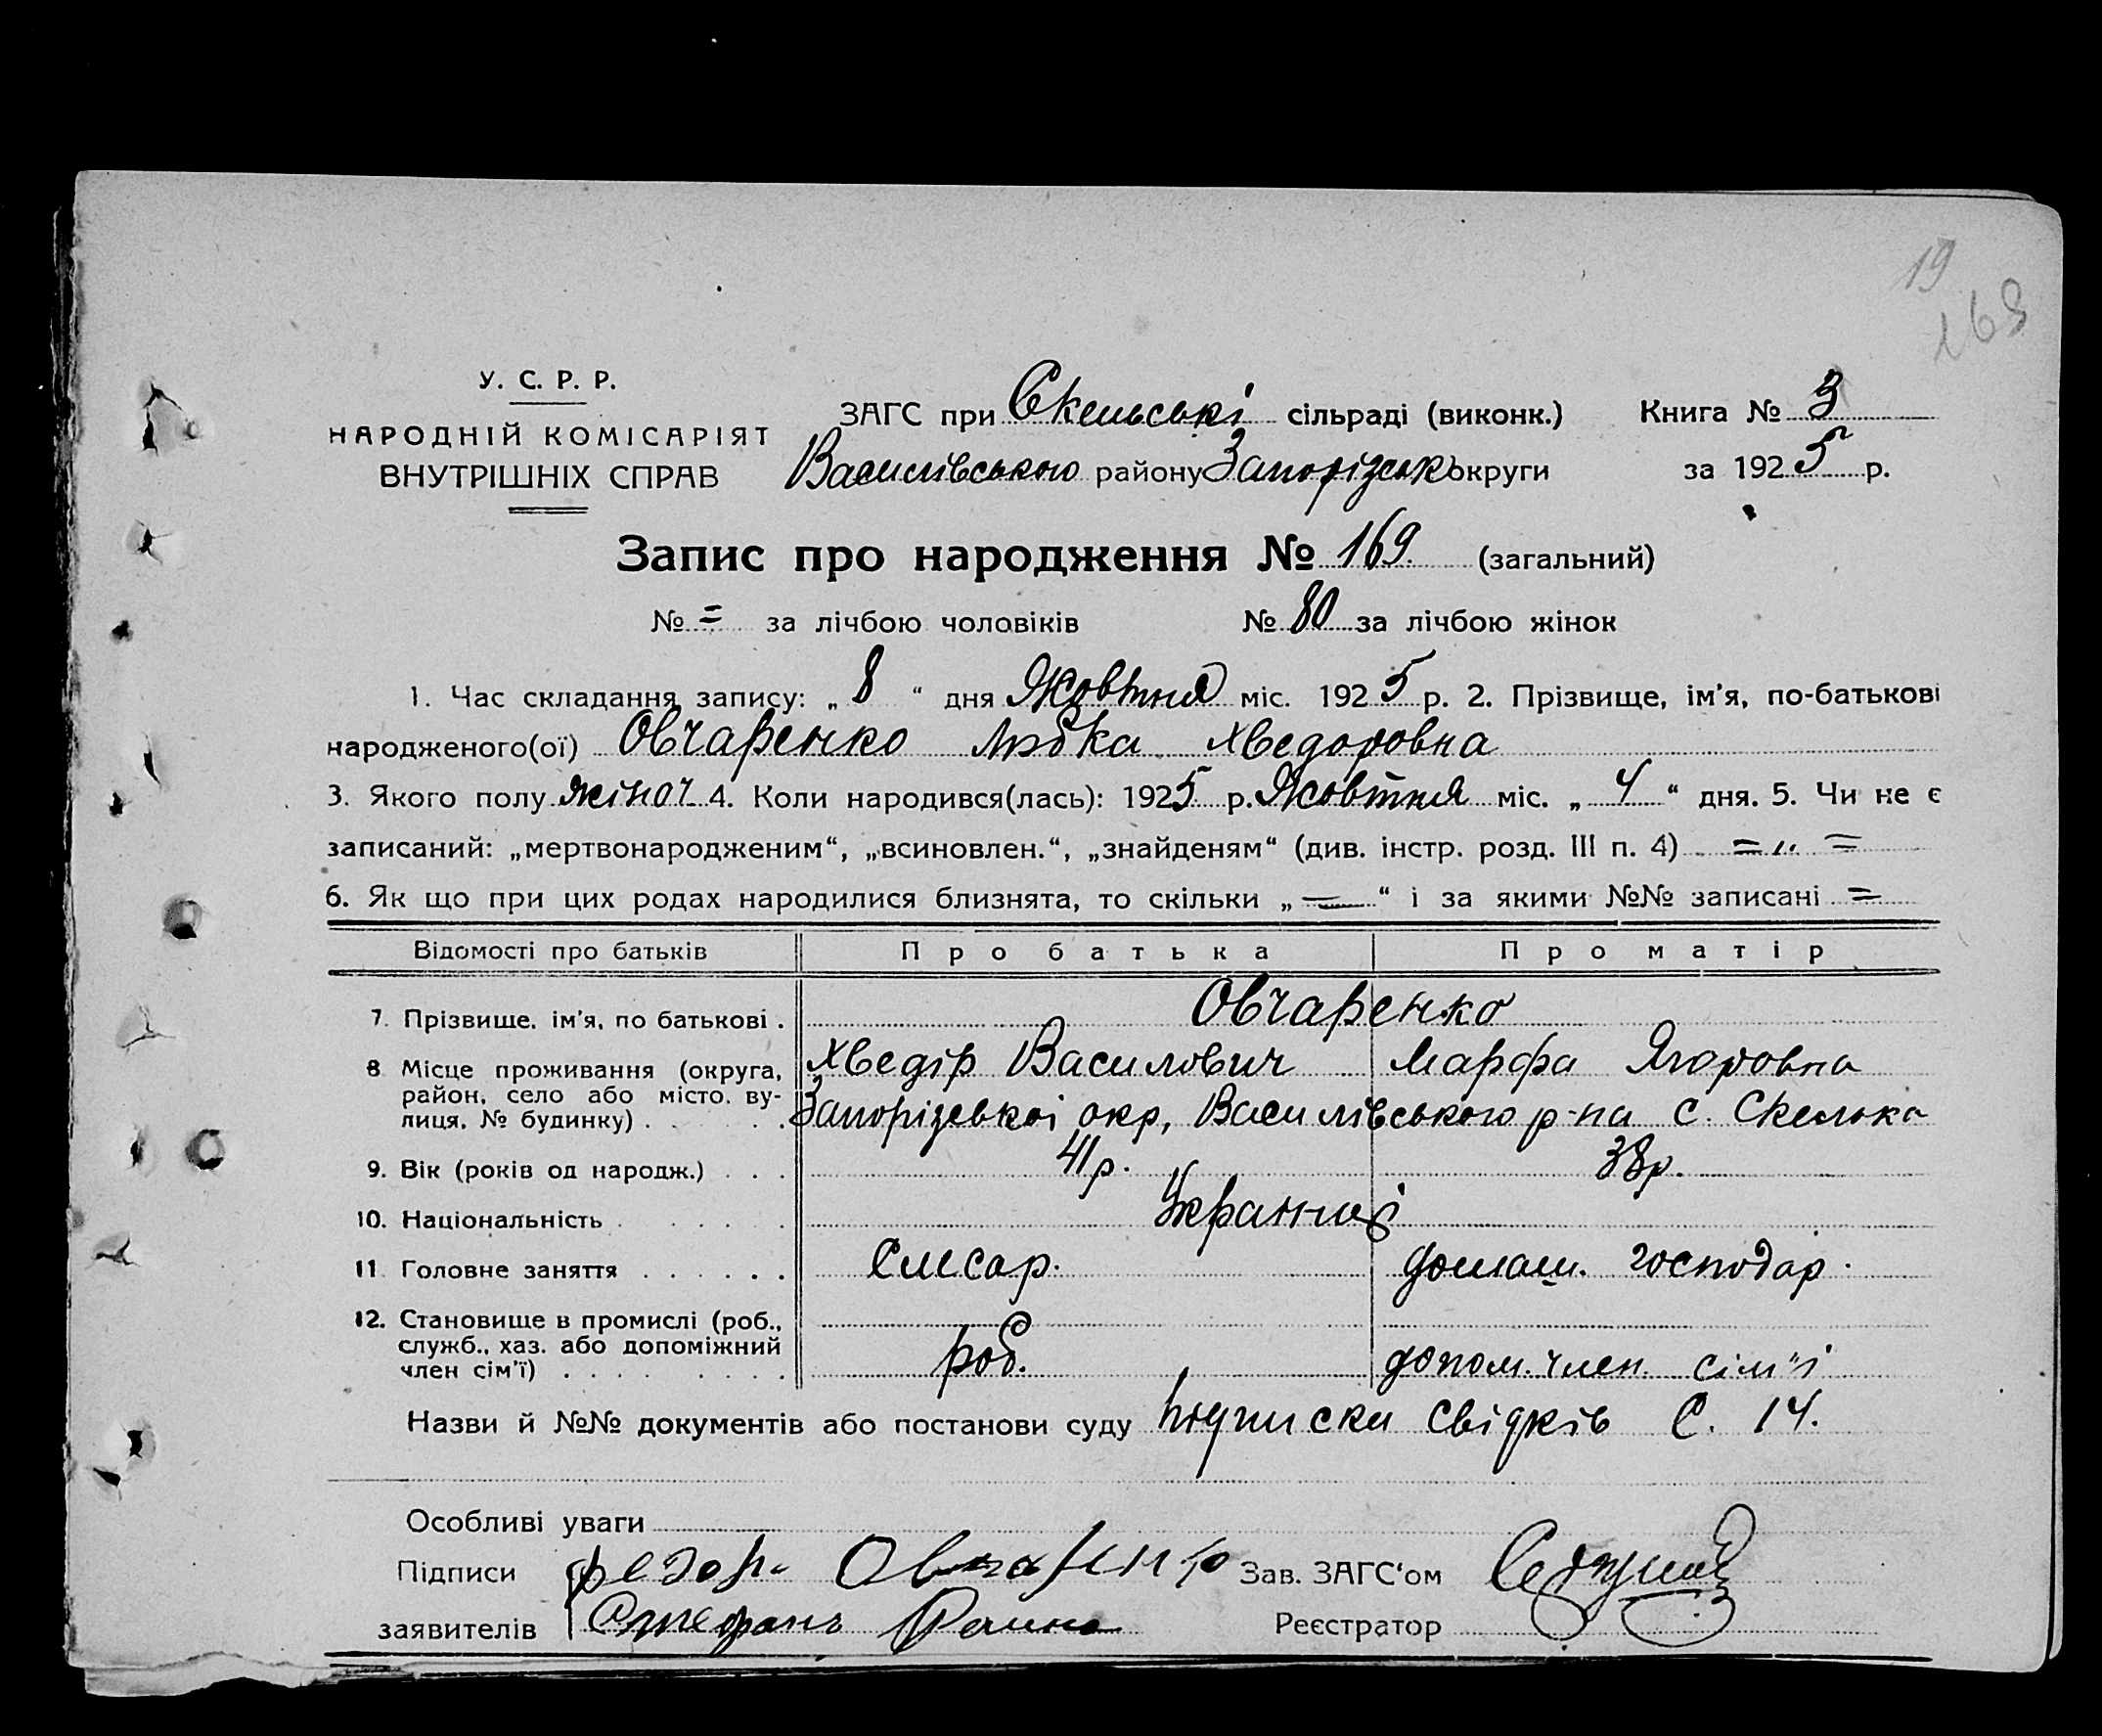 19
169
У. С. Р. Р.
НАРОДНІЙ КОМІСАРІЯТ
ВНУТРІШНІХ СПРАВ
ЗАГС при Скельські сільраді (виконк.) Книга № 3
Василівського району Запорізськ округи за 1925 р.
Запис про народження № 169. (загальний)
№ = за лічбою чоловіків № 80 за лічбою жінок
1. Час складання запису: „ 8 “ дня Жовтня міс. 1925 р. 2. Прізвище, ім'я, по-батькові
народженого(ої) Овчаренко Любка Хведоровна
3. Якого полу жіноч. 4. Коли народився(лась): 1925 р. Жовтня міс. „ 4 “ дня. 5. Чи не є
записаний: „мертвонародженим“, „всиновлен.“, „знайденям“ (див. інстр. розд. III п. 4) = „ =
6. Як що при цих родах народилися близнята, то скільки „ = “ і за якими №№ записані =
Відомості про батьків Про батька Про матір
7. Прізвище, ім'я, по батькові . Овчаренко
Хведір Василович Марфа Ягоровна
8 Місце проживання (округа,
район, село або місто, ву-
лиця, № будинку) . . . . Запорізької окр, Василівського р-на с. Скелька
9. Вік (років од народж.) . . . 41 р. 38 р.
10. Національність . . . . . . Украинці
11. Головне заняття . . . . . . Слєсар. домаш. господар.
12. Становище в промислі (роб.,
служб., хаз. або допоміжний
член сім'ї) . . . . . . . . роб. допом. член. сім"ї
Назви й №№ документів або постанови суду підписки свідків С. 14.
Особливі уваги
Підписи Федоръ Овчаренко Зав. ЗАГС'ом
заявителів Стефанъ Реєстратор